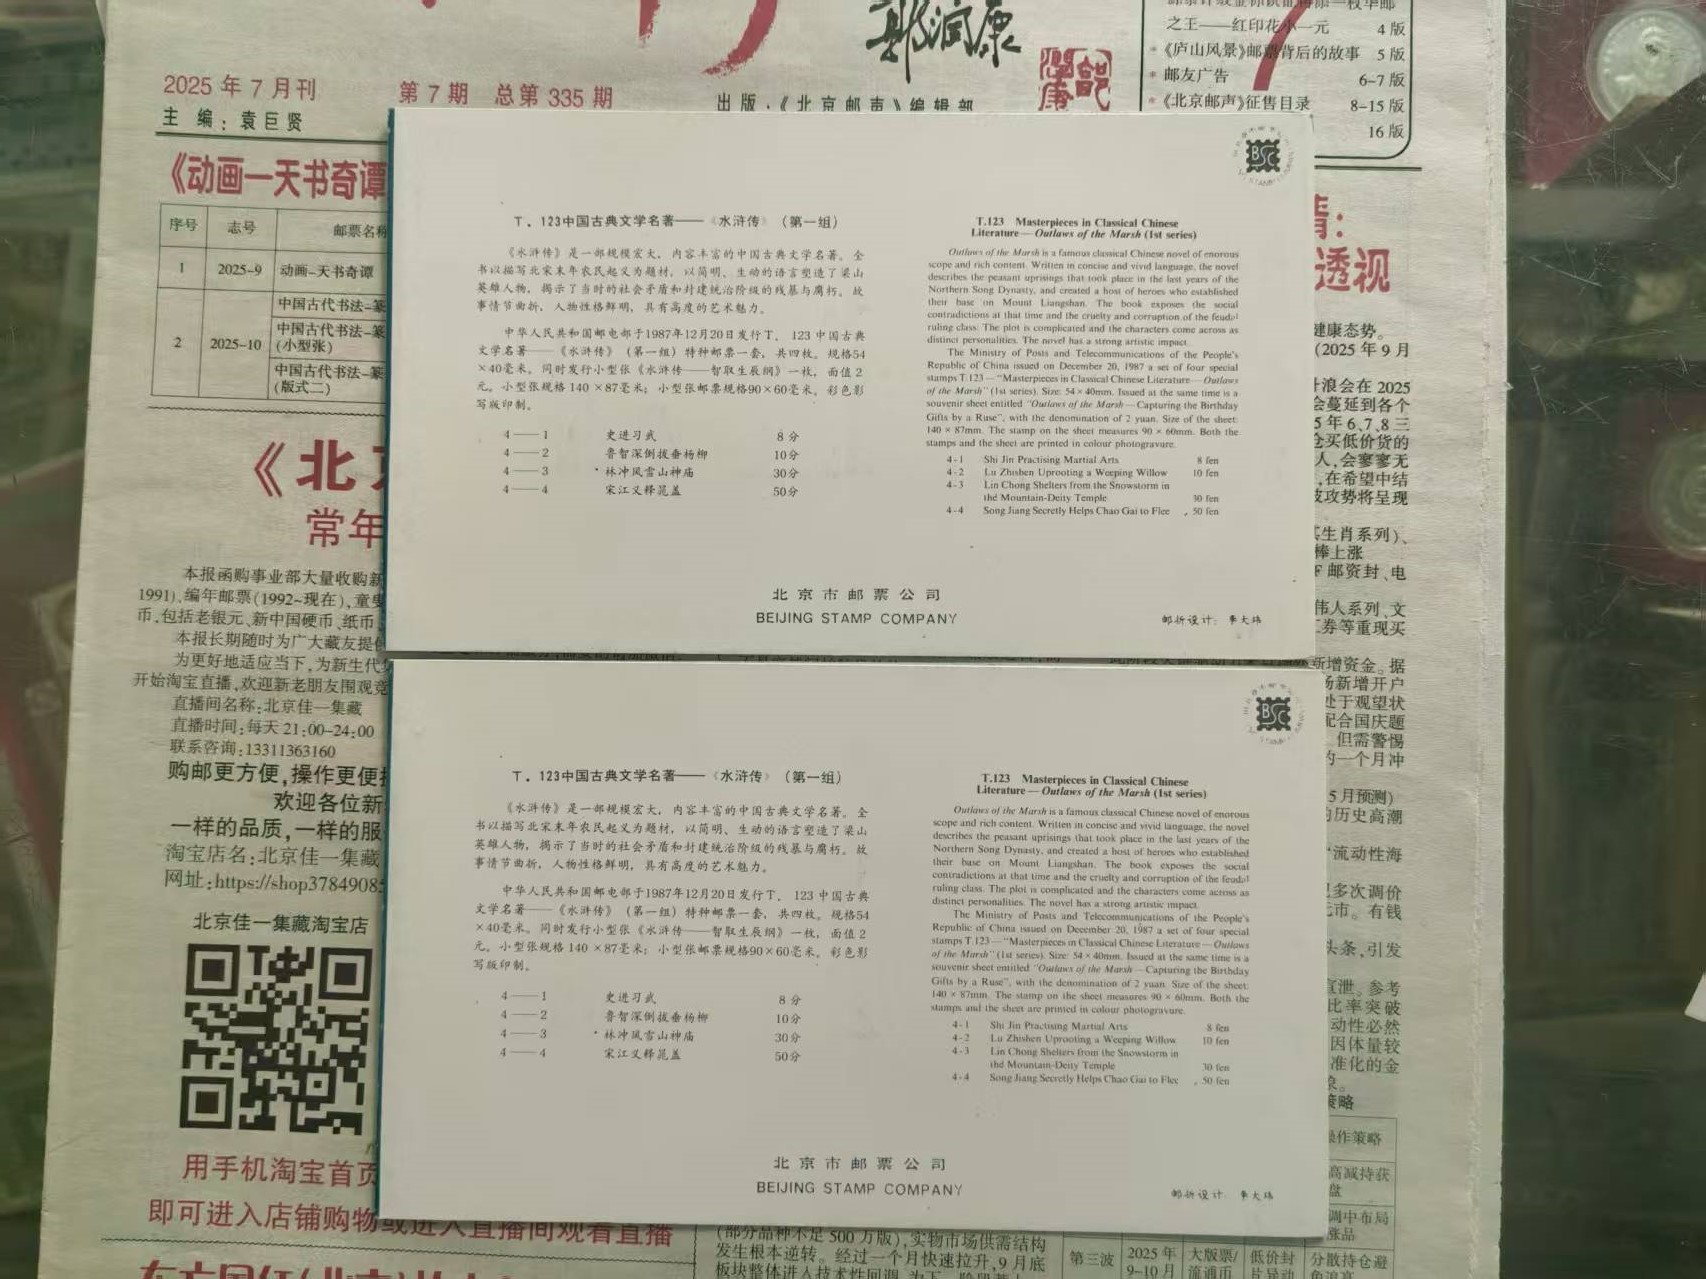 2025年7月刊
第7期 总第335期
主 编：袁巨贤
之王——红印花小一元 4版
*《庐山风景》邮票背后的故事 5版
* 邮友广告 6-7版
*《北京邮声》征售目录 8-15版
16版
《动画—天书奇谭
序号 志号 邮票名称
1 2025-9 动画-天书奇谭
中国古代书法-篆
2 2025-10 中国古代书法-篆
(小型张)
中国古代书法-篆
(版式二)
常年
本报函购事业部大量收购新
1991),编年邮票(1992-现在),童叟
币,包括老银元、新中国硬币、纸币
本报长期随时为广大藏友提供
为更好地适应当下,为新生代
开始淘宝直播,欢迎新老朋友围观竞
直播间名称:北京佳一集藏
直播时间:每天21:00-24:00
联系咨询:13311363160
购邮更方便,操作更便捷
欢迎各位新
一样的品质,一样的服
淘宝店名:北京佳一集藏
网址:https://shop3784908
北京佳一集藏淘宝店
用手机淘宝首页
即可进入店铺购物或进入直播间观看直播
T．123中国古典文学名著——《水浒传》（第一组）
《水浒传》是一部规模宏大，内容丰富的中国古典文学名著。全
书以描写北宋末年农民起义为题材，以简明、生动的语言塑造了梁山
英雄人物，揭示了当时的社会矛盾和封建统治阶级的残暴与腐朽。故
事情节曲折，人物性格鲜明，具有高度的艺术魅力。
中华人民共和国邮电部于1987年12月20日发行T．123中国古典
文学名著——《水浒传》（第一组）特种邮票一套，共四枚。规格54
×40毫米。同时发行小型张《水浒传——智取生辰纲》一枚，面值2
元。小型张规格140×87毫米；小型张邮票规格90×60毫米。彩色影
写版印制。
4——1 史进习武 8分
4——2 鲁智深倒拔垂杨柳 10分
4——3 林冲风雪山神庙 30分
4——4 宋江义释晁盖 50分
T.123 Masterpieces in Classical Chinese
Literature — Outlaws of the Marsh (1st series)
Outlaws of the Marsh is a famous classical Chinese novel of enorous
scope and rich content. Written in concise and vivid language, the novel
describes the peasant uprisings that took place in the last years of the
Northern Song Dynasty, and created a host of heroes who established
their base on Mount Liangshan. The book exposes the social
contradictions at that time and the cruelty and corruption of the feudal
ruling class. The plot is complicated and the characters come across as
distinct personalities. The novel has a strong artistic impact.
The Ministry of Posts and Telecommunications of the People's
Republic of China issued on December 20, 1987 a set of four special
stamps T.123 — "Masterpieces in Classical Chinese Literature — Outlaws
of the Marsh" (1st series). Size: 54×40mm. Issued at the same time is a
souvenir sheet entitled "Outlaws of the Marsh — Capturing the Birthday
Gifts by a Ruse", with the denomination of 2 yuan. Size of the sheet:
140 × 87mm. The stamp on the sheet measures 90 × 60mm. Both the
stamps and the sheet are printed in colour photogravure.
4-1 Shi Jin Practising Martial Arts 8 fen
4-2 Lu Zhishen Uprooting a Weeping Willow 10 fen
4-3 Lin Chong Shelters from the Snowstorm in
the Mountain-Deity Temple 30 fen
4-4 Song Jiang Secretly Helps Chao Gai to Flee 50 fen
北京市邮票公司
BEIJING STAMP COMPANY
邮折设计：李大玮
T．123中国古典文学名著——《水浒传》（第一组）
《水浒传》是一部规模宏大，内容丰富的中国古典文学名著。全
书以描写北宋末年农民起义为题材，以简明、生动的语言塑造了梁山
英雄人物，揭示了当时的社会矛盾和封建统治阶级的残暴与腐朽。故
事情节曲折，人物性格鲜明，具有高度的艺术魅力。
中华人民共和国邮电部于1987年12月20日发行T．123中国古典
文学名著——《水浒传》（第一组）特种邮票一套，共四枚。规格54
×40毫米。同时发行小型张《水浒传——智取生辰纲》一枚，面值2
元。小型张规格140×87毫米；小型张邮票规格90×60毫米。彩色影
写版印制。
4——1 史进习武 8分
4——2 鲁智深倒拔垂杨柳 10分
4——3 林冲风雪山神庙 30分
4——4 宋江义释晁盖 50分
T.123 Masterpieces in Classical Chinese
Literature — Outlaws of the Marsh (1st series)
Outlaws of the Marsh is a famous classical Chinese novel of enorous
scope and rich content. Written in concise and vivid language, the novel
describes the peasant uprisings that took place in the last years of the
Northern Song Dynasty, and created a host of heroes who established
their base on Mount Liangshan. The book exposes the social
contradictions at that time and the cruelty and corruption of the feudal
ruling class. The plot is complicated and the characters come across as
distinct personalities. The novel has a strong artistic impact.
The Ministry of Posts and Telecommunications of the People's
Republic of China issued on December 20, 1987 a set of four special
stamps T.123 — "Masterpieces in Classical Chinese Literature — Outlaws
of the Marsh" (1st series). Size: 54×40mm. Issued at the same time is a
souvenir sheet entitled "Outlaws of the Marsh — Capturing the Birthday
Gifts by a Ruse", with the denomination of 2 yuan. Size of the sheet:
140 × 87mm. The stamp on the sheet measures 90 × 60mm. Both the
stamps and the sheet are printed in colour photogravure.
4-1 Shi Jin Practising Martial Arts 8 fen
4-2 Lu Zhishen Uprooting a Weeping Willow 10 fen
4-3 Lin Chong Shelters from the Snowstorm in
the Mountain-Deity Temple 30 fen
4-4 Song Jiang Secretly Helps Chao Gai to Flee 50 fen
北京市邮票公司
BEIJING STAMP COMPANY
邮折设计：李大玮
透视
健康态势。
(2025年9月
浪会在2025
会蔓延到各个
5年6、7、8三
仓买低价货的
人,会寥寥无
,在希望中结
攻势将呈现
生肖系列)、
棒上涨
F邮资封、电
伟人系列、文
券等重现买
新增资金。据
场新增开户
处于观望状
配合国庆题
但需警惕
的一个月冲
5月预测)
的历史高潮
"流动性海
多次调价
元市。有钱
头条,引发
宣泄。参考
比率突破
动性必然
因体量较
准化的金
象。
策略
操作策略
高减持获
盘
调中布局
涨品
(部分品种不足500万版),实物市场供需结构
发生根本逆转。经过一个月快速拉升,9月底
第三波 2025年 大版票/ 低价封 分散持仓避
9-10月 流通币 片异动